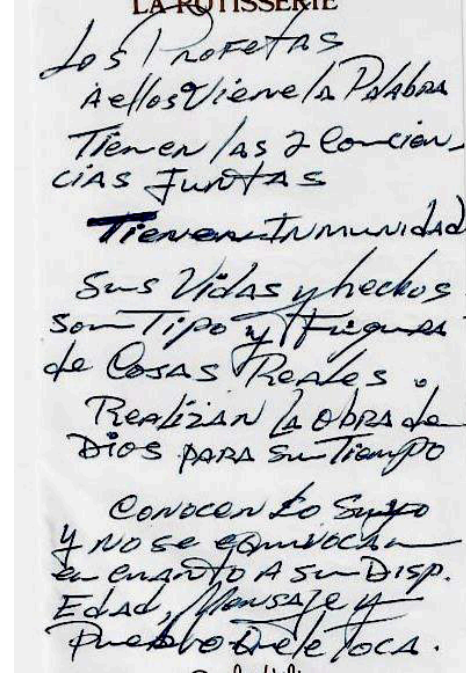 LA ROTISSERIE
Los Profetas
A ellos Viene la Palabra
Tienen las 2 Concien-
cias Juntas
Tienen Inmunidad
Sus Vidas y hechos
son Tipo y Figura
de Cosas Reales.
Realizan la obra de
Dios para su Tiempo
Conocen Lo Suyo
y no se equivocan
en cuanto a su Disp.
Edad, Mensaje y
Pueblo que le Toca.